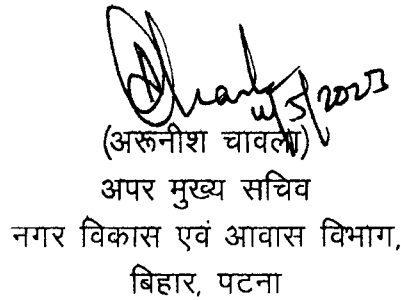 11/5/2023
(अरूनीश चावला)
अपर मुख्य सचिव
नगर विकास एवं आवास विभाग,
बिहार, पटना